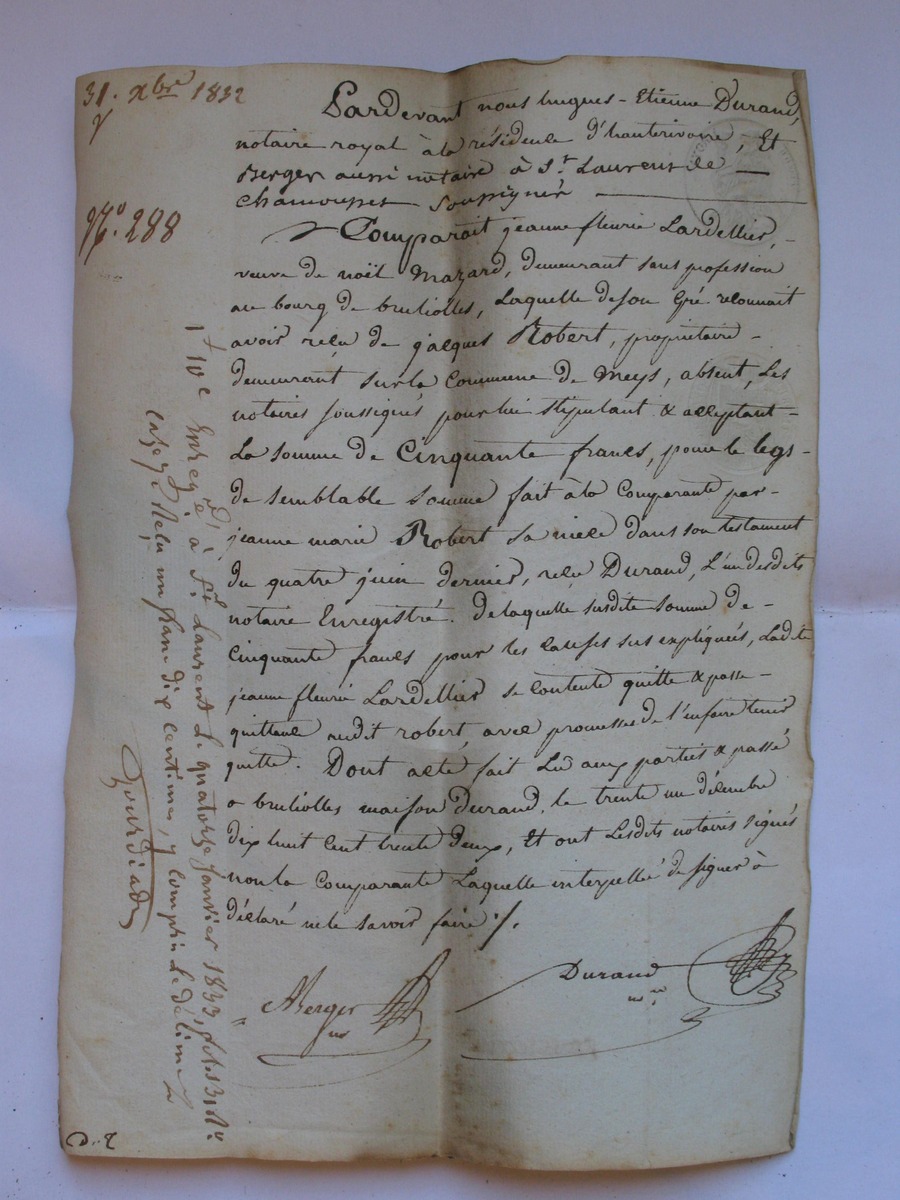 31. xbre 1832
No. 288
Pardevant nous hugues-Etienne Durand,
notaire royal à la résidence d'hauterivoire, Et
Berger aussi notaire à St. Laurent de
Chamousset soussignés
Comparait jeanne fleurie Lardellier,
veuve de noël Mazard, demeurant sans profession
au bourg de brulioles, Laquelle de son Gré reconnait
avoir reçu de jacques Robert, propriétaire
demeurant sur la Commune de Meys, absent, Les
notaires soussignés pour lui stipulant & acceptant
La somme de Cinquante francs, pour le legs
de semblable somme fait à la Comparante par
jeanne marie Robert sa niece dans son testament
du quatre juin dernier, reçu Durand, L'un desdits
notaire Enregistré. De laquelle susdite somme de
Cinquante francs pour les causes sus expliquées, Ladite
jeanne fleurie Lardellier se contente quitte & passe
quittance audit robert, avec promesse de l'en faire tenir
quitte. Dont acte fait Lû aux parties & passé
a brulioles maison Durand, le trente un décembre
dix huit cent trente deux, Et ont Lesdits notaires signés
non la Comparante Laquelle interpellée de signer à
déclaré ne le savoir faire ./.
Berger
nre
Durand
nre
Enreg. à St. Laurent Le quatorze janvier 1833, fo.
Reçu un franc dix centimes, y compris Le décime